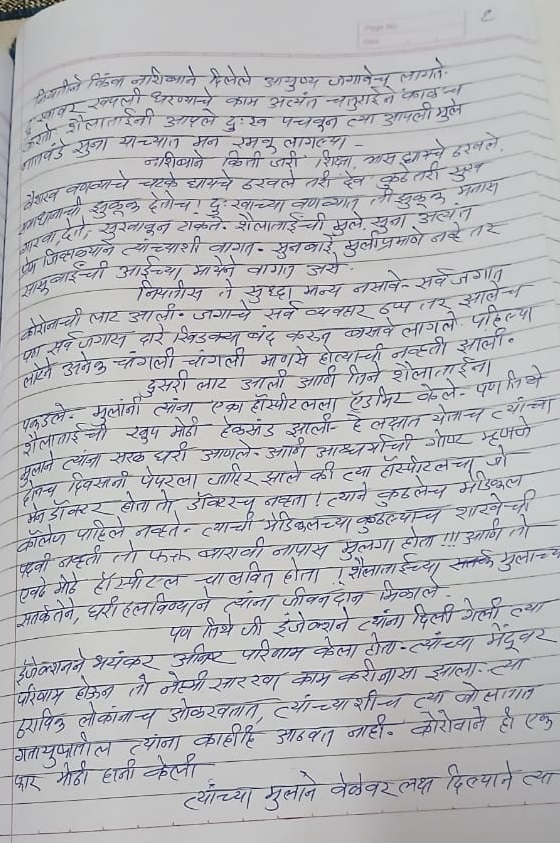 २
नियतीने किंवा नशिबाने दिलेले आयुष्य जगावेच लागते.
दुःखावर खपली धरण्याचे काम अत्यंत चतुराईने काळच
करतो. शैलाताईंनी आपले दुःख पचवून त्या आपली मुले
नातवंडे सुना यांच्यात मन रमवू लागल्या -
नशिबाने किती जरी शिक्षा, त्रास द्यायचे ठरवले,
वैशाख वणव्याचे चटके द्यायचे ठरवले तरी देव कुठे तरी सुख
समाधानाची झुळूक देतोच! दुःखाच्या वणव्यात ती झुळूक मनास
गारवा देते, सुखावून टाकते. शैलाताईंची मुले, सुना अत्यंत
प्रेम जिव्हाळ्याने त्यांच्याशी वागत. सुनबाई मुलींप्रमाणे नव्हे तर
सासुबाईंची आईच्या मायेने वागत असे.
नियतीस ते सुध्दा मान्य नसावे. सर्व जगात
कोरोनाची लाट आली. जगाचे सर्व व्यवहार ठप्प तर झालेच
पण सर्व जगास दारे खिडक्या बंद करून बसावे लागले. पहिल्या
लाटेने अनेक चांगली चांगली माणसे होत्याची नव्हती झाली.
दुसरी लाट आली आणि तिने शैलाताईंना
पकडले. मुलांनी त्यांना एका हॉस्पीटलला ॲडमिट केले. पण तिथे
शैलाताईंची खुप मोठी हेळसांड झाली. हे लक्षात येताच त्यांच्या
मुलाने त्यांना सरळ घरी आणले. आणि आश्चर्याची गोष्ट म्हणजे
दोनच दिवसांनी पेपरला जाहिर झाले की त्या हॉस्पीटलचा जो
मेन डॉक्टर होता तो डॉक्टरच नव्हता! त्याने कुठलेच मेडिकल
कॉलेज पाहिले नव्हते. त्याची मेडिकलच्या कुठल्याच शाखेची
पदवी नव्हती तो फक्त बारावी नापास मुलगा होता!!! आणि तो
एवढे मोठे हॉस्पीटल चालवित होता! शैलाताईंच्या मुलाच्या
सतर्कतेने, घरी हलविण्याने त्यांना जीवनदान मिळाले.
पण तिथे जी इंजेक्शने त्यांना दिली गेली त्या
इंजेक्शनने भयंकर अनिष्ट परिणाम केला होता. त्यांच्या मेंदूवर
परिणाम होऊन तो नेहमी सारखा काम करीनासा झाला. त्या
ठराविक लोकांनाच ओळखतात, त्यांच्याशीच त्या बोलतात
गतायुष्यातील त्यांना काहीही आठवत नाही. कोरोनाने ही एक
फार मोठी हानी केली
त्यांच्या मुलाने वेळेवर लक्ष दिल्याने त्या